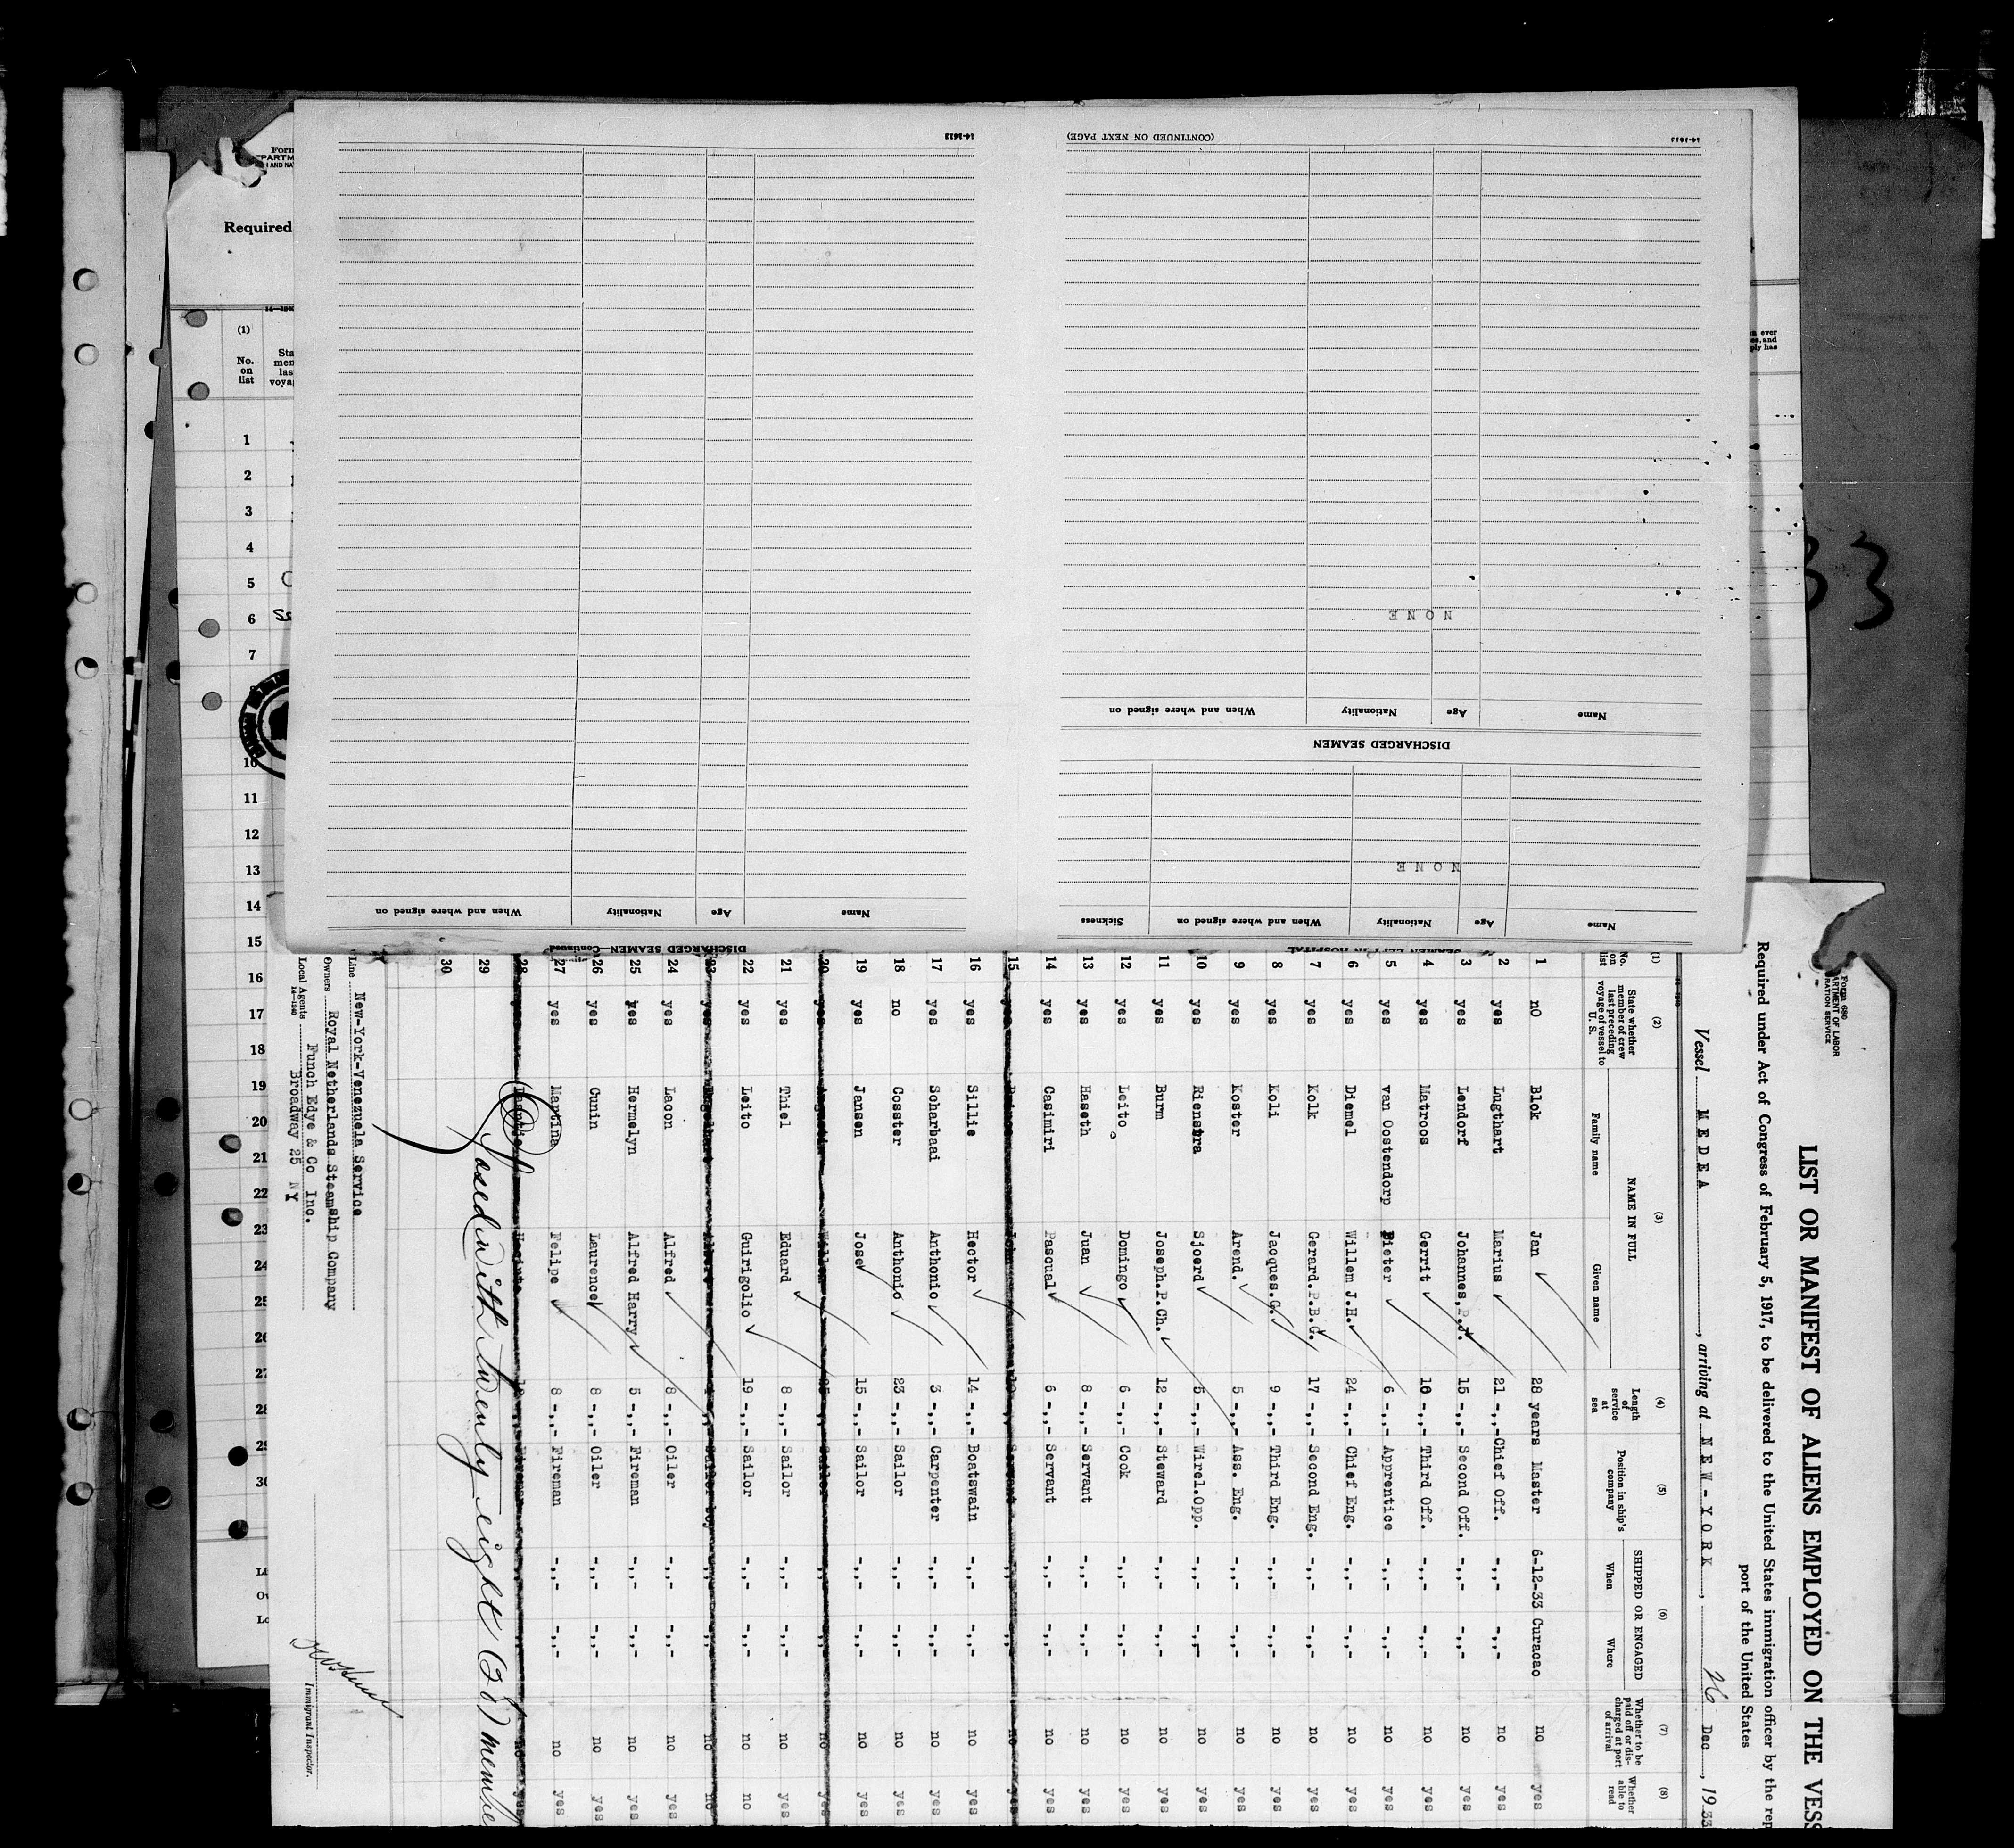 LIST OR MANIFEST OF ALIENS EMPLOYED ON THE VESS
Required under Act of Congress of February 5, 1917, to be delivered to the United States immigration officer by the rep
port of the United States
Form 680
RTMENT OF LABOR
RATION SERVICE
Vessel MEDEA, arriving at NEW-YORK, 26 Dec, 1933
(1) (2) (3) (4) (5) (6) (7) (8)
No. on list
State whether member of crew last preceding voyage of vessel to U. S.
NAME IN FULL
Family name
Given name
Length of service at sea
Position in ship's company
SHIPPED OR ENGAGED
When
Where
Whether to be paid off or discharged at port of arrival
Whether able to read
1 no Blok Jan 28 years Master 6-12-33 Curacao no yes
2 yes Lugthart Marius 21 -,,- Chief Off. -,,- -,,- no yes
3 yes Lendorf Johannes.P.J. 15 -,,- Second Off. -,,- -,,- no yes
4 yes Matroos Gerrit 10 -,,- Third Off. -,,- -,,- no yes
5 yes van Oostendorp Pieter 6 -,,- Apprentice -,,- -,,- no yes
6 yes Diemel Willem J.H. 24 -,,- Chief Eng. -,,- -,,- no yes
7 yes Kolk Gerard.P.B.G. 17 -,,- Second Eng. -,,- -,,- no yes
8 yes Koli Jacques.G. 9 -,,- Third Eng. -,,- -,,- no yes
9 yes Koster Arend. 5 -,,- Ass. Eng. -,,- -,,- no yes
10 yes Rienstra Sjoerd 5 -,,- Wirel.Opp. -,,- -,,- no yes
11 yes Burm Joseph.P.Ch. 12 -,,- Steward -,,- -,,- no yes
12 yes Leito Domingo 6 -,,- Cook -,,- -,,- no yes
13 yes Haseth Juan 8 -,,- Servant -,,- -,,- no yes
14 yes Casimiri Pascual 6 -,,- Servant -,,- -,,- no yes
15 yes Servant -,,- -,,- no yes
16 yes Sillie Hector 14 -,,- Boatswain -,,- -,,- no yes
17 yes Scharbaai Anthonio 3 -,,- Carpenter -,,- -,,- no yes
18 no Gosster Anthonio 23 -,,- Sailor -,,- -,,- no yes
19 yes Jansen Jose 15 -,,- Sailor -,,- -,,- no yes
20 yes Sailor -,,- -,,- no yes
21 yes Thiel Eduard 8 -,,- Sailor -,,- -,,- no yes
22 yes Leito Guirigolio 19 -,,- Sailor -,,- -,,- no no
23 yes Albert Sailor boy -,,- -,,- no no
24 yes Lacon Alfred 8 -,,- Oiler -,,- -,,- no yes
25 yes Hermelyn Alfred Harry 5 -,,- Fireman -,,- -,,- no yes
26 yes Cunin Laurence 8 -,,- Oiler -,,- -,,- no yes
27 yes Martina Felipe 8 -,,- Fireman -,,- -,,- no yes
28 no yes
29 Closed with twenty eight (28) membe
30
Line New-York-Venezuela Service
Owners Royal Netherlands Steamship Company
Local Agents Funch Edye & Co Inc.
Broadway 25 NY
14-1240
Immigrant Inspector.
SEAMEN LEFT IN HOSPITAL
Name Age Nationality When and where signed on Sickness
NONE
DISCHARGED SEAMEN
Name Age Nationality When and where signed on
NONE
(CONTINUED ON NEXT PAGE)
14-1613
DISCHARGED SEAMEN—Continued
Name Age Nationality When and where signed on
14-1613
Form
EPARTM
Required
(1)
No. on list
Sta
men
las
voya
1
2
3
4
5
6
7
10
11
12
13
14
15
16
17
18
19
20
21
22
23
24
25
26
27
28
29
30
Li
Ov
Lc
ever
es, and
ply has
33